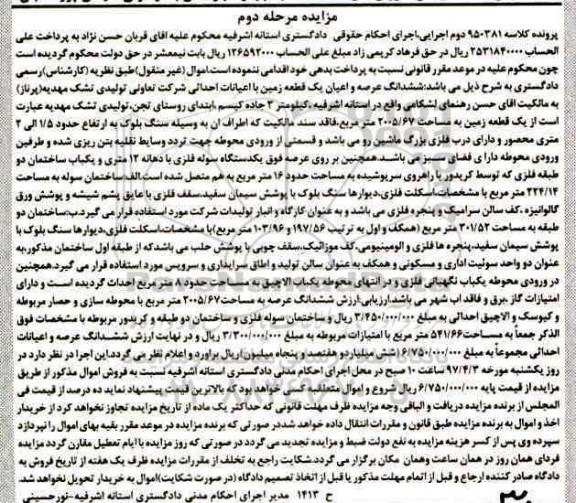 مزایده مرحله دوم
پرونده کلاسه ۹۵۰۳۸۱ دوم اجرایی،اجرای احکام حقوقی دادگستری استانه اشرفیه محکوم علیه اقای قربان حسن نژاد به پرداخت علی
الحساب ۲۵۳۱۸۴۰۰۰۰ ریال در حق فرهاد کریمی زاد مبلغ علی الحساب ۱۲۶۵۹۲۰۰۰ ریال بابت نیمعشر در حق دولت محکوم گردیده است
چون محکوم علیه در موعد مقرر قانونی نسبت به پرداخت بدهی خود اقدامی ننموده است.اموال (غیر منقول)طبق نظریه (کارشناس)رسمی
دادگستری به شرح ذیل می باشد:ششدانگ عرصه و اعیان یک قطعه زمین با اعیانات احداثی شرکت تعاونی تولیدی تشک مهدیه(پرناز)
به مالکیت اقای حسن رهنمای لشکامی واقع در استانه اشرفیه ،کیلومتر ۲ جاده کیسم ،ابتدای روستای تجن،تولیدی تشک مهدیه عبارت
است از یک قطعه زمین به مساحت ۲۰۰۵/۶۷ متر مربع،فاقد سند مالکیت که اطراف ان به وسیله سنگ بلوک به ارتفاع حدود ۱/۵ الی ۲
متری محصور و دارای درب فلزی بزرگ ماشین رو می باشد و قسمتی از ورودی محوطه جهت تردد وسایط نقلیه بتن ریزی شده و طرفین
ورودی محوطه دارای فضای سبز می باشد.همچنین بر روی عرصه فوق یکدستگاه سوله فلزی با دهانه ۱۲ متری و یکباب ساختمان دو
طبقه فلزی که توسط کریدور یا راهروی سرپوشیده به مساحت حدود ۱۶ متر مربع به هم متصل شده است.الف:ساختمان سوله به مساحت
۲۲۴/۱۴ متر مربع با مشخصات:اسکلت فلزی،دیوارها سنگ بلوک با پوشش سیمان سفید،سقف فلزی با عایق پشم شیشه و پوشش ورق
گالوانیزه ،کف سالن سرامیک و پنجره فلزی می باشد و به عنوان کارگاه و انبار تولیدات شرکت مورد استفاده قرار می گیرد.ب:ساختمان دو
طبقه به مساحت ۳۰۱/۵۲ متر مربع (همکف و اول به ترتیب ۱۹۷/۵۶ و ۱۰۳/۹۶ متر مربع)با مشخصات:اسکلت فلزی،دیوارها سنگ بلوک با
پوشش سیمان سفید،پنجره ها فلزی و الومینیومی،کف موزائیک،سقف چوبی با پوشش حلب می باشد که از طبقه اول ساختمان مذکور،به
عنوان دو واحد سوئیت اداری و مسکونی و همکف به عنوان سالن تولید و اطاق سرایداری و سرویس مورد استفاده قرار می گیرد.همچنین
در ورودی محوطه یکباب نگهبانی فلزی و در انتهای محوطه یکباب الاچیق به مساحت حدود ۸ متر مربع احداث گردیده است و دارای
امتیازات گاز ،برق و فاقد اب شهر می باشد.ارزیابی:ارزش ششدانگ عرصه به مساحت ۲۰۰۵/۶۷ متر مربع با محوطه سازی و حصار مربوطه
و کیوسک و الاچیق احداثی به مبلغ ۳/۴۵۰/۰۰۰/۰۰۰ ریال و ساختمان سوله فلزی و ساختمان دو طبقه و کریدور مربوطه با مشخصات فوق
الذکر جمعاً به مساحت ۵۴۱/۶۶ متر مربع با امتیازات مربوطه به مبلغ ۳/۳۰۰/۰۰۰/۰۰۰ ریال و در نهایت ارزش ششدانگ عرصه و اعیانات
احداثی مجموعاً به مبلغ ۶/۷۵۰/۰۰۰/۰۰۰ شش میلیارد و هفتصد و پنجاه میلیون ریال براورد و اعلام نظر می گردد.این اجرا در نظر دارد در
روز یکشنبه مورخه ۹۷/۴/۳ ساعت ۱۰ صبح در محل اجرای احکام مدنی دادگستری استانه اشرفیه نسبت به فروش اموال مذکور از طریق
مزایده از قیمت پایه ۶/۷۵۰/۰۰۰/۰۰۰ ریال شروع و اموال متعلق به کسی خواهد بود که بالاترین قیمت پیشنهاد نماید ده درصد از قیمت فی
المجلس از برنده مزایده دریافت و الباقی وجه مزایده ظرف مهلت قانونی که حداکثر یک ماده از تاریخ مزایده تجاوز نخواهد کرد از خریدار
اخذ و اموال به برنده مزایده طبق قانون و مقررات انتقال داده خواهد شد.در صورتی که برنده مزایده در موعد مقرر بقیه بهای اموال را نپردازد
سپرده وی پس از کسر هزینه مزایده به نفع دولت ضبط و مزایده تجدید می گردد در صورتی که روز مزایده با ایام تعطیل مقارن گردد مزایده
فردای همان روز در همان ساعت وهمان مکان برگزار می گردد.شکایت راجع به تخلف از مقررات مزایده ظرف یک هفته از تاریخ فروش به
دادگاه صادر کننده ارجاع و قبل از اتمام مهلت مذکور یا قبل از اتخاذ تصمیم دادگاه (در صورت شکایت)اموال به خریدار تحویل نخواهد شد.
ح ۱۴۱۳ مدیر اجرای احکام مدنی دادگستری استانه اشرفیه-نورحسینی